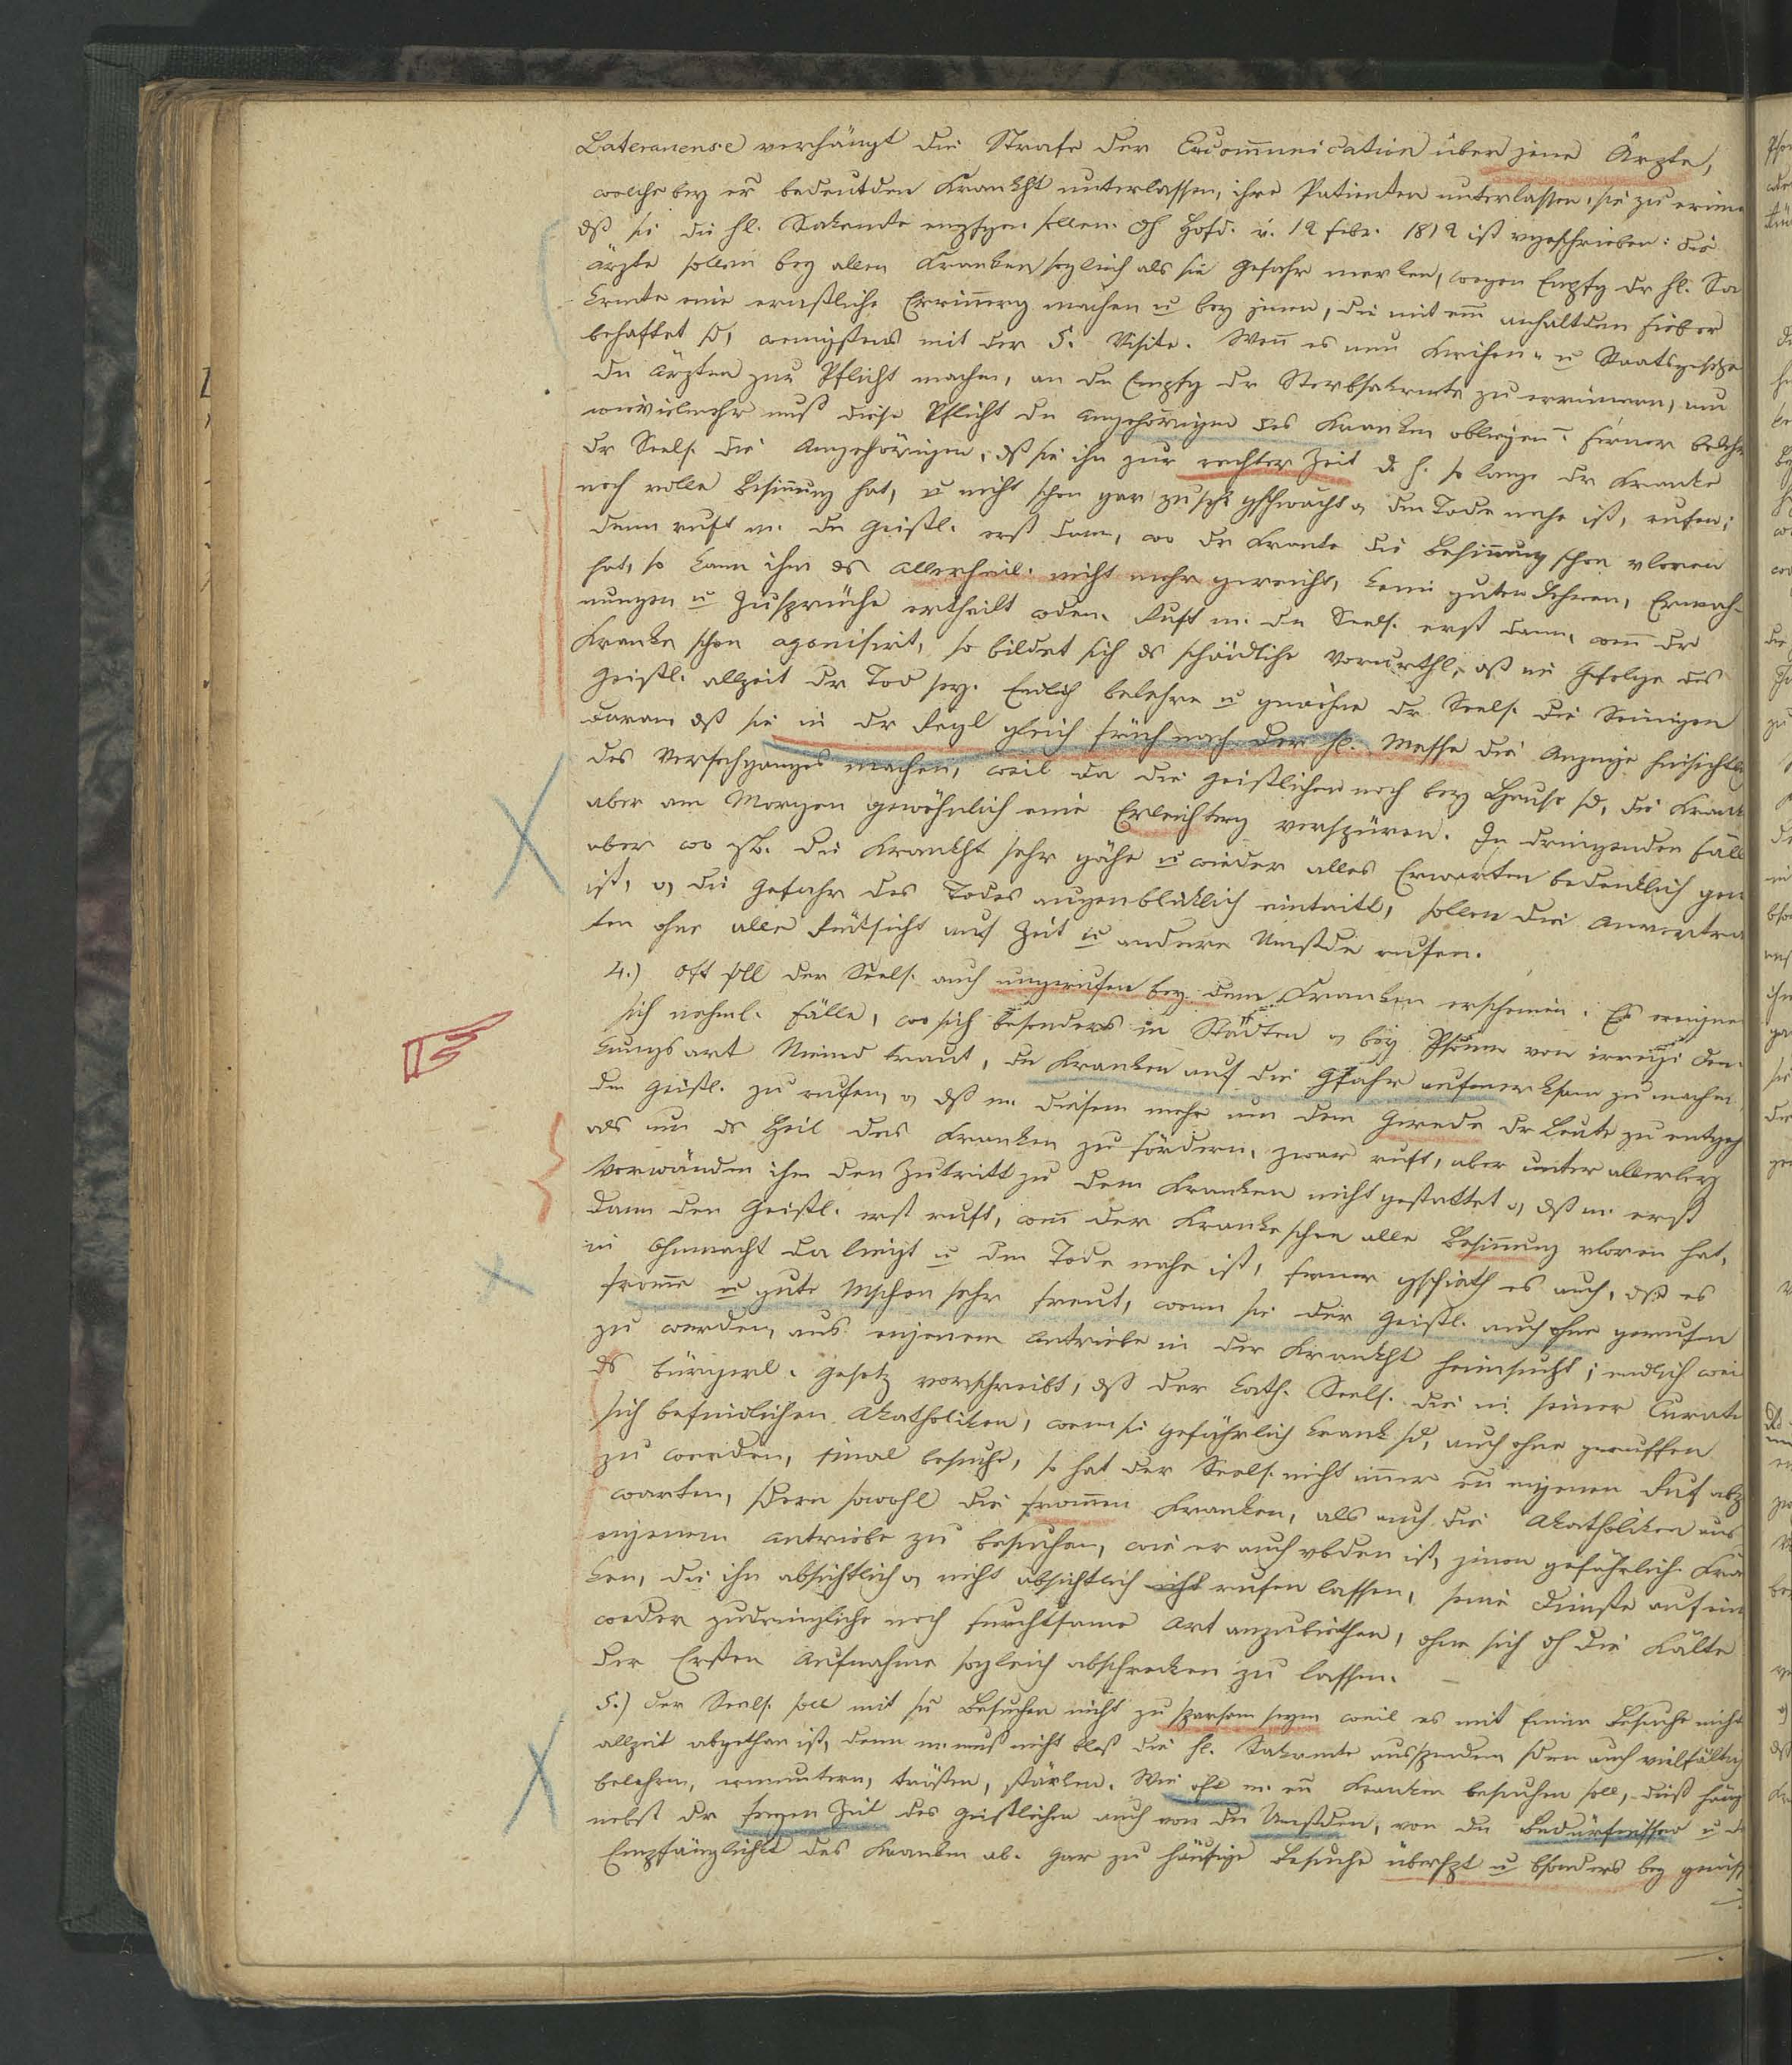 Lateranense verhängt die Strafe der Excommunication über jene Ärzte,
welche bey er bedeutden Krankht unterlassen, ihre Patienten unterlassen, sie zu erinn
dß sie die hl. Sakramente empfgen sollen. Hofd. v. 12 febr. 1812 ist vgeschrieben: die
ärzte sollen bey allen Kranken sogleich als sie Gefahr merken, wegen Empfg dr hl. Sa
kramte eine ernstliche Errinnerg machen u bey jenen, die mit em anhaltdem Fieber
behaftet sd, wenigstens mit der 5. Visite. Wenn es nun Kirchen- u Staatsgesetze
den Ärzten zur Pflicht machen, an den Empfg dr Sterbsakrmte zu errinnern, um
wievielmehr muß diese Pflicht den Angehörigen des Kranken obliegen. Ferner belehre
dr Seels. die Angehörigen, dß sie ihn zur rechten Zeit d. h. so lange der Kranke
noch volle Besinnung hat, u nicht schon gar zu sehr gschwächt o dem Tode nahe ist, rufen;
denn ruft m. den Geistl. erst dann, wo der Kranke die Besinnung schon vloren
hat, so kann ihm ds Allerheil. nicht mehr gereicht, keine guten Lehren, Ermah-
nungen u Zusprüche ertheilt wden. Ruft m. den Seels. erst dann, wenn der
Kranke schon agonisirt, so bildet sich ds schädliche Vorurthl, dß im Gefolge des
Geistl. allzeit der Tod sey. Endlich belehre u gewöhne dr Seels. die Seinigen
daran dß sie in dr Regl gleich früh nach der hl. Messe die Anzeige hinsichtlich
des Versehganges machen, weil da die Geistlichen noch bey Hause sd, die Krank
aber am Morgen gewöhnlich eine Erleichterg verspüren. In dringenden Fäll
aber wo zB. die Krankht sehr gähe u wieder alles Erwarten bedenklich gew
ist, o die Gefahr des Todes augenblicklich eintritt, sollen die Anvertra
ten ohne alle Rücksicht auf Zeit u andere Umstde rufen.
4.) Oft soll der Seels. auch ungerufen bey dem Kranken erscheinen. Es ereigne
sich nehml. Fälle, wo sich besonders in Städten o bey Psonen von irreligi Den-
kungsart Niemd traut, den Kranken auf die Gfahr aufmerksam zu machen,
den Geistl. zu rufen, o dß m. diesem mehr um dem Gerede der Leute zu entgeh
als um ds Heil des Kranken zu fördern, zwar ruft, aber unter allerley
Vorwänden ihm den Zutritt zu dem Kranken nicht gestattet o, dß m. erst
dann den Geistl. erst ruft, wenn der Kranke schon alle Besinnung vloren hat,
in Ohnmacht da liegt u dem Tode nahe ist, ferner gschieht es auch, dß es
fromme u gute Mschen sehr freut, wenn sie der Geistl. auch ohne gerufen
zu werden, aus eigenem Antriebe in der Krankht heimsucht; endlich wei
ds bürgerl. Gesetz vorschreibt, dß der kath. Seels. die in seiner Curatie
sich befindlichen Akatholiken, wenn sie gefährlich krank sd, auch ohne geruffen
zu werden, einmal besuche, so hat der Seels. nicht immer en eigenen Ruf abz
warten, sdern sowohl die frommen Kranken, als auch die Akatholiken aus
eigenem Antriebe zu besuchen, wie er auch vbden ist, jenen gefährlich Kra
ken, die ihn absichtlich o nicht absichtlich nicht rufen lassen, seine Dienste auf ein
weder zudringliche noch furchtsame Art anzubiethen, ohne sich die Kälte
der Ersten Aufnahme sogleich abschrecken zu lassen.
5.) Der Seels. soll mit sn Besuchen nicht zu sparsam seyn weil es mit Einem Besuche nicht
allzeit abgethan ist, denn m. muß nicht bloß die hl. Sakramte ausspenden sdern auch vielfältig
belehren, ermuntern, trösten, stärken. Wie oft m. en Kranken besuchen soll, dieß häng
nebst dr freyen Zeit des Geistlichen auch von den Umstden, von den Bedürfnissen u d
Empfänglichkt des Kranken ab. Gar zu häufige Besuche überhpt u bsonders bey gewiss